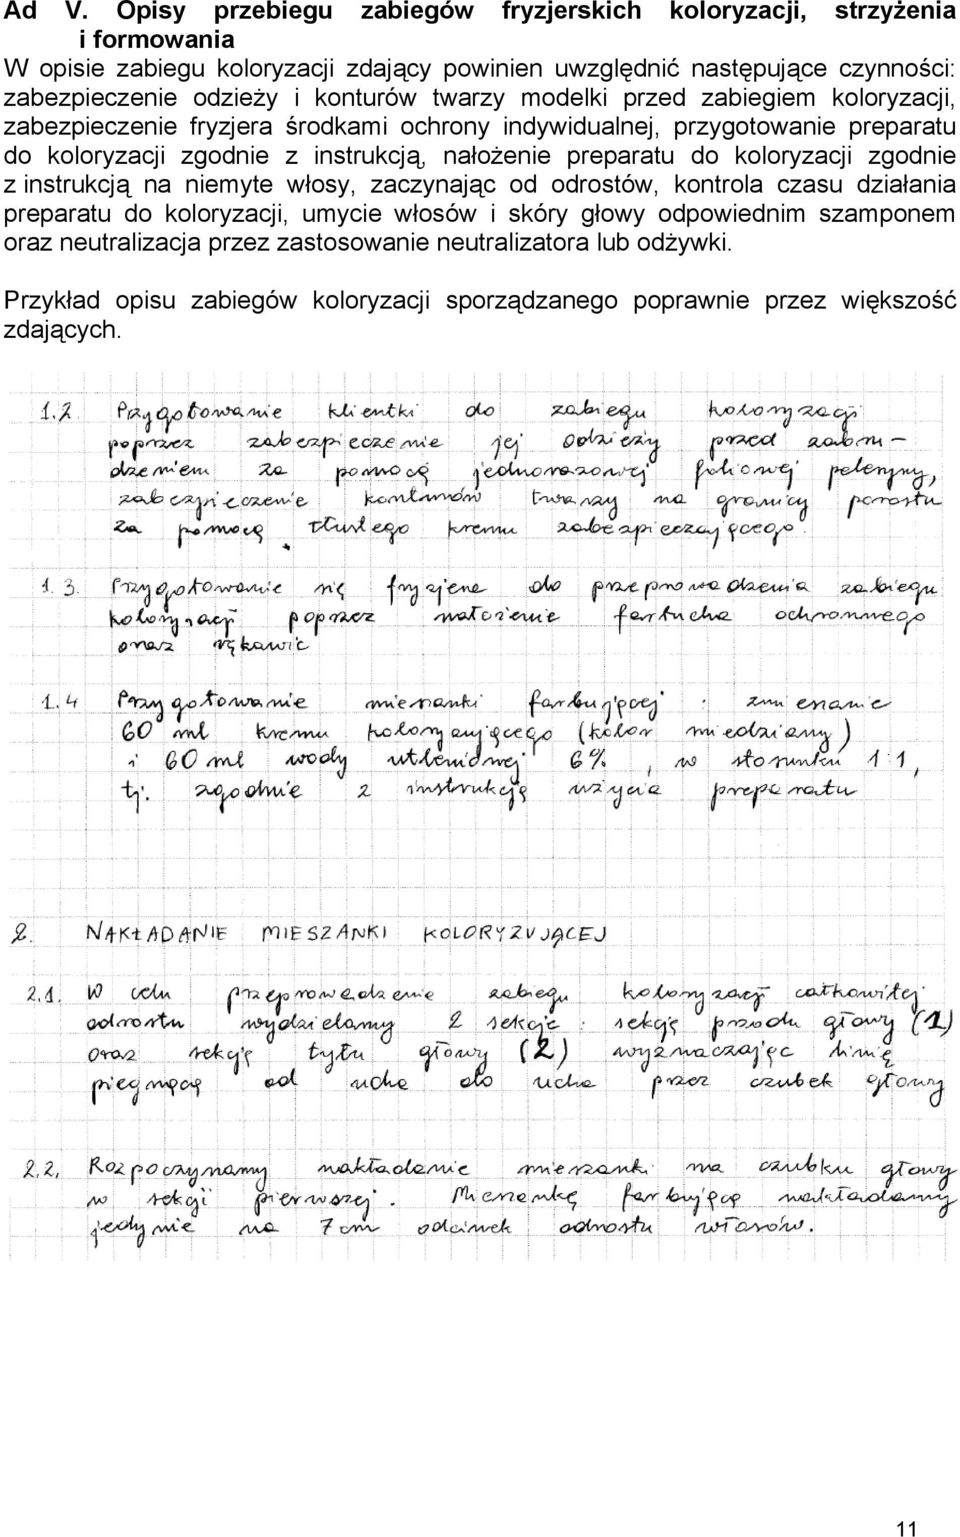 Ad V. Opisy przebiegu zabiegów fryzjerskich koloryzacji, strzyżenia
i formowania
W opisie zabiegu koloryzacji zdający powinien uwzględnić następujące czynności:
zabezpieczenie odzieży i konturów twarzy modelki przed zabiegiem koloryzacji,
zabezpieczenie fryzjera środkami ochrony indywidualnej, przygotowanie preparatu
do koloryzacji zgodnie z instrukcją, nałożenie preparatu do koloryzacji zgodnie
z instrukcją na niemyte włosy, zaczynając od odrostów, kontrola czasu działania
preparatu do koloryzacji, umycie włosów i skóry głowy odpowiednim szamponem
oraz neutralizacja przez zastosowanie neutralizatora lub odżywki.
Przykład opisu zabiegów koloryzacji sporządzanego poprawnie przez większość
zdających.
1.2 Przygotowanie klientki do zabiegu koloryzacji
poprzez zabezpieczenie jej odzieży przed zabru-
dzeniem za pomocą jednorazowej foliowej peleryny,
zabezpieczenie konturów twarzy na granicy porostu
za pomocą tłustego kremu zabezpieczającego.
1.3. Przygotowanie się fryzjera do przeprowadzenia zabiegu
koloryzacji poprzez nałożenie fartucha ochronnego
oraz rękawic
1.4 Przygotowanie mieszanki farbującej : zmieszanie
60 ml kremu koloryzującego (kolor miedziany)
i 60 ml wody utlenionej 6%, w stosunku 1 1,
tj. zgodnie z instrukcją użycia preparatu
2. NAKŁADANIE MIESZANKI KOLORYZUJĄCEJ
2.1. W celu przeprowadzenie zabiegu koloryzacji całkowitej
odrostu wydzielamy 2 sekcje : sekcję przodu głowy (1)
oraz sekcję tyłu głowy (2) wyznaczając linię
biegnącą od ucha do ucha przez czubek głowy
2.2. Rozpoczynamy nakładanie mieszanki na czubku głowy
w sekcji pierwszej. Mieszankę farbującą nakładamy
jedynie na 7cm odcinek odrostu włosów.
11